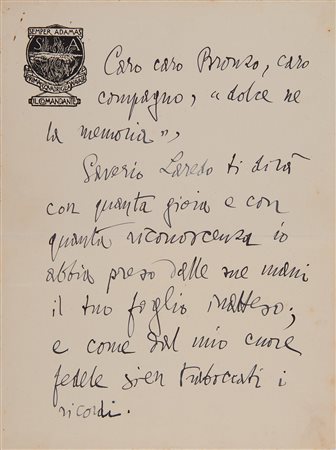 SEMPER ADAMAS
S A
IL COMANDANTE
Caro caro Bronzo, caro
compagno, "dolce ne
la memoria",
Saverio Laredo ti dirà
con quanta gioia e con
quanta riconoscenza io
abbia preso dalle sue mani
il tuo foglio inatteso;
e come dal mio cuore
fedele sien traboccati i
ricordi.